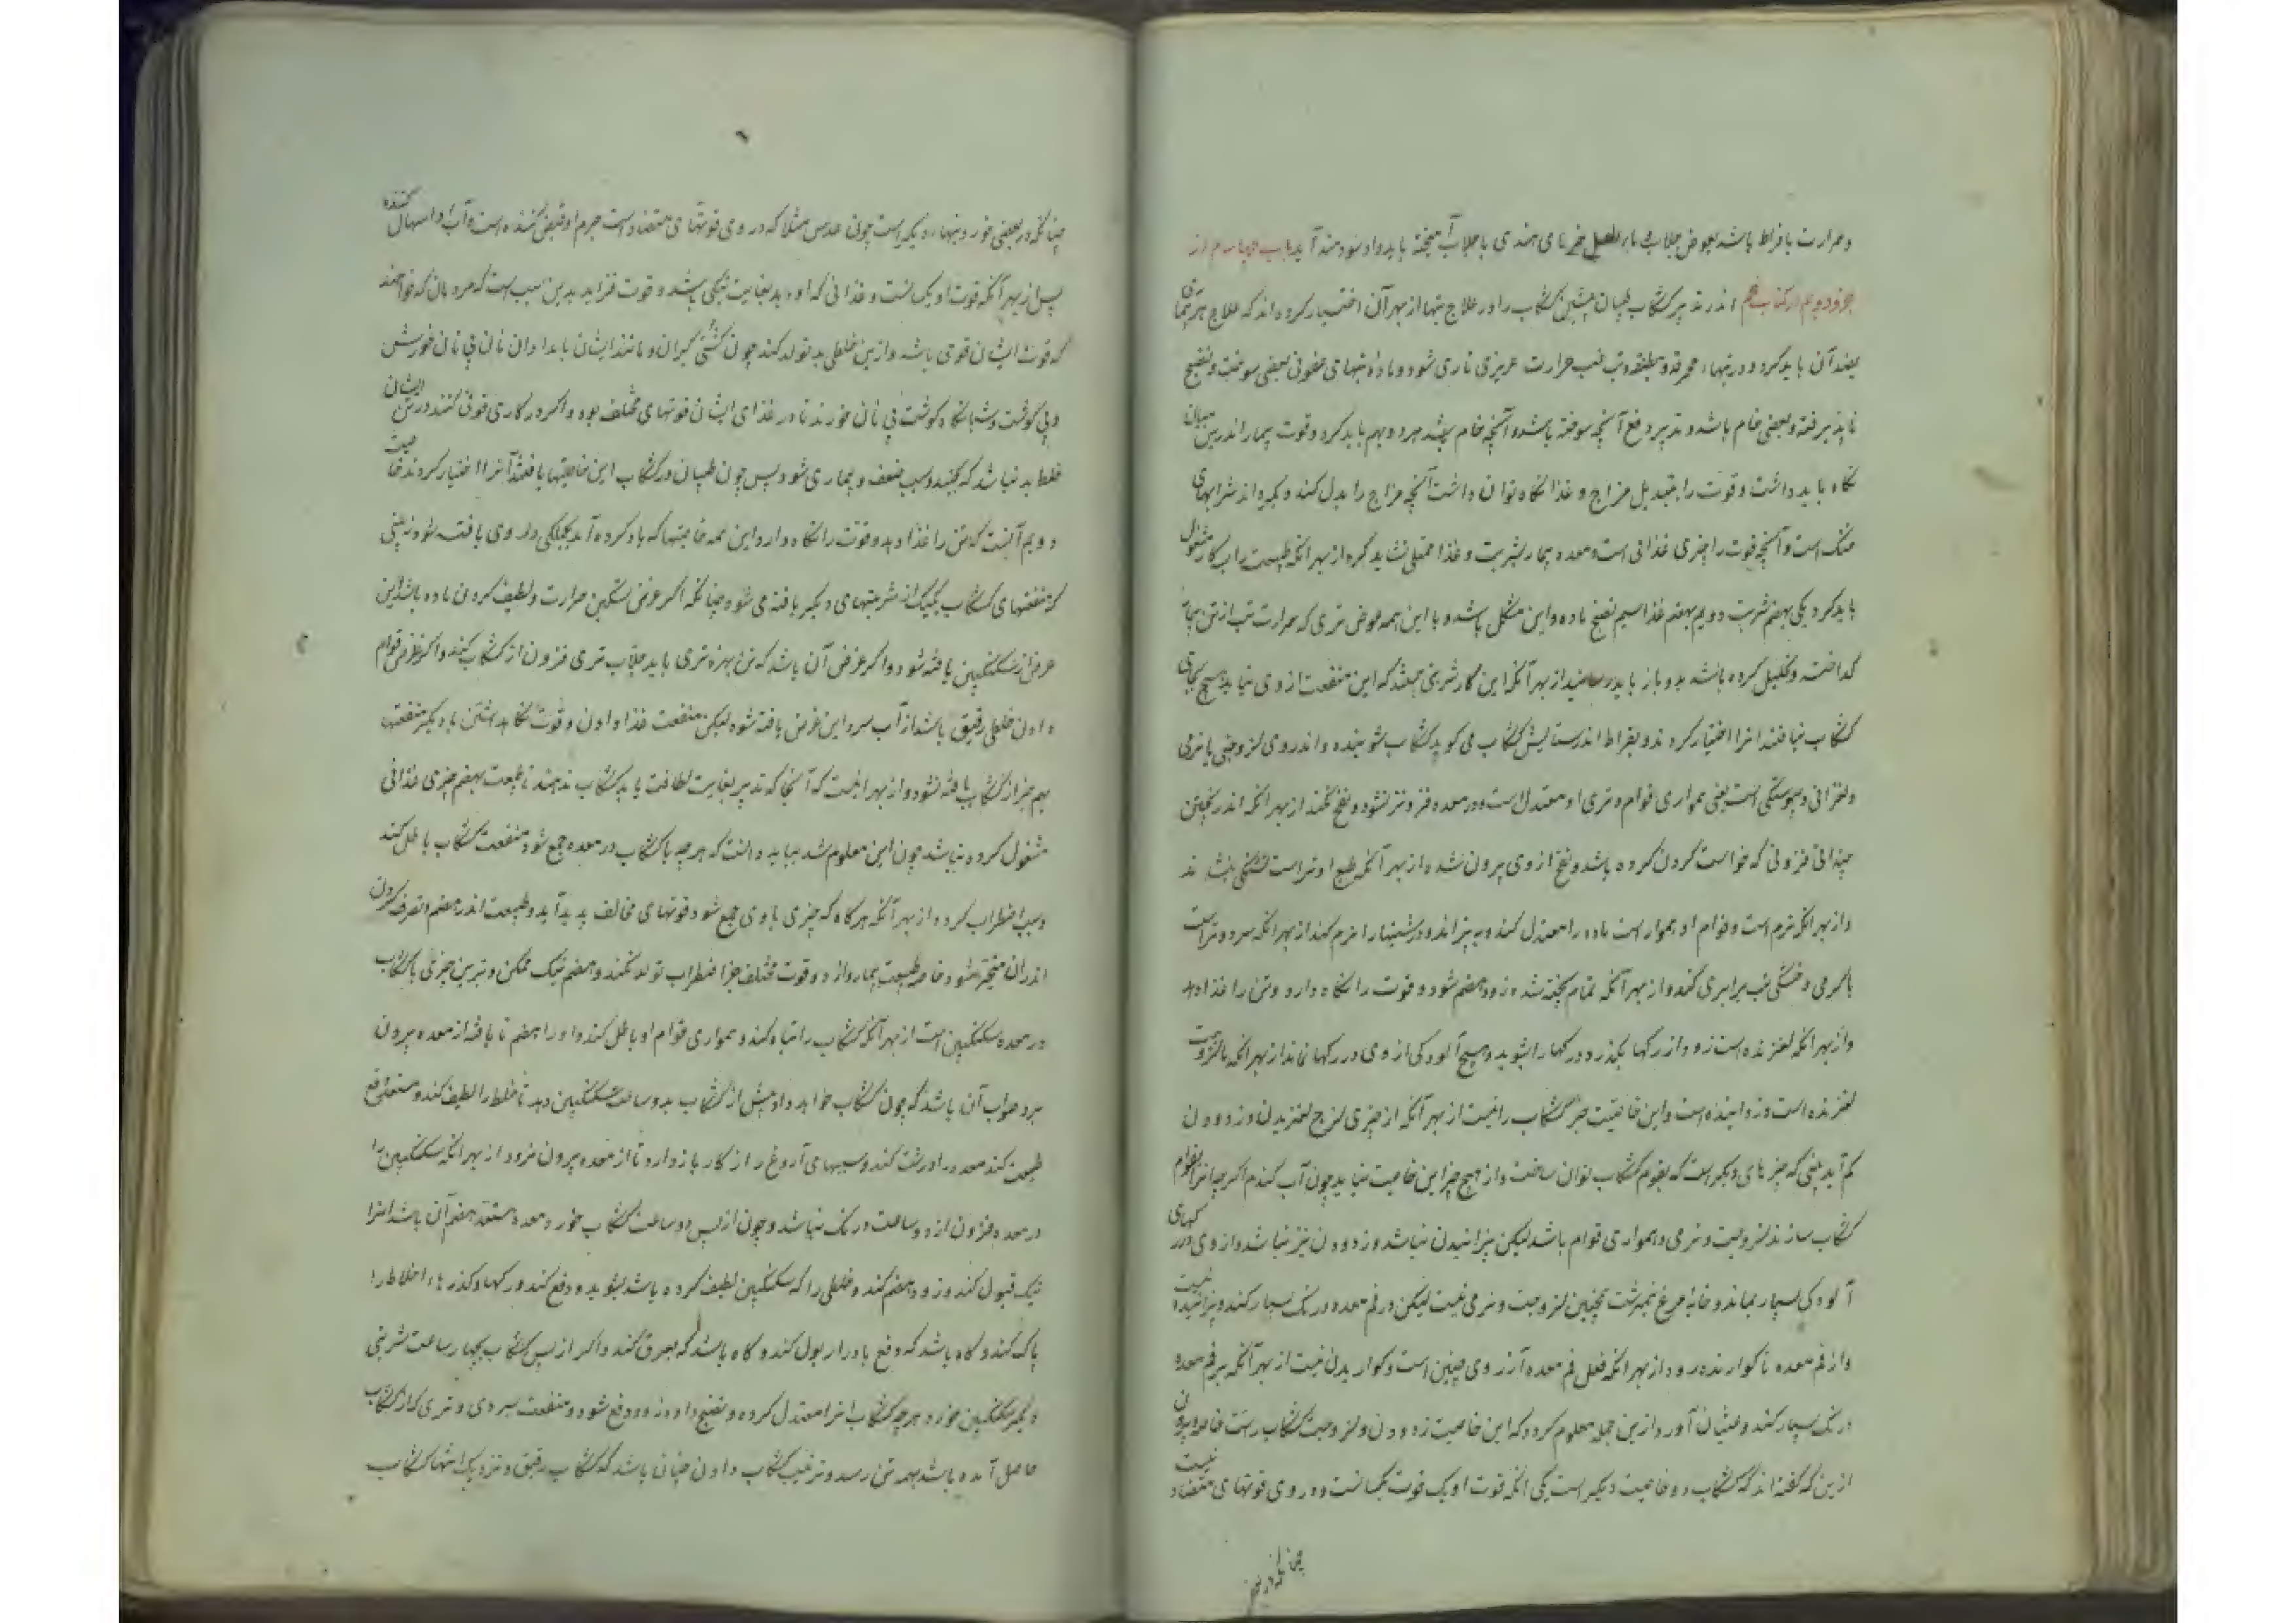 و حرارت بافراط باشد بعوض جلاب ماء العسل خرنامی هندی با جلاب آمیخته باید داد سودمند آید باب چهارم از
جزو دویم از کتاب پنجم اندر تدبیر کشکاب طبیبان پیشین کشکاب را در علاج تبها از بهر آن اختیار کرده اند که علاج هر بیماری
بضد آن باید کرد و در تبهاء محرقه و مطبقه و تب غب حرارت غریزی ناری شود و مادهٔ تبهای عفونی بعضی سوخته و نضج
ناپذیرفته و بعضی خام باشد و تدبیر دفع آنچه سوخته باشد و آنچه خام باشد هر دو بهم باید کرد و قوت بیمار اندرین میان
نگاه باید داشت و قوت را بتبدیل مزاج و غذا نگاه توان داشت آنچه مزاج را بدل کند و بگرداند شرابهای
خنک است و آنچه قوت را چیزی غذائی است و معده بیمار بشربت و غذا ممتلی نشاید کرد از بهر آنکه طبیعت را بسه کار مشغول
باید کرد یکی بهضم شربت دویم بهضم غذا سیم نضج ماده و این مشکل باشد و با این همه عوض تری که حرارت تب از تن بیمار
گداخته و تحلیل کرده باشد بدو باز باید رسانید از بهر آنکه این کار شربتی باشد که این منفعت از وی بیاید هیچ بجای
کشکاب نیافتند انرا اختیار کردند و بقراط اندر ستایش کشکاب می گوید کشکاب شوینده و اندر وی لزوجتی با نرمی
و لغزانی و پیوستگی است یعنی همواری قوام و تری او معتدل است و در معده فزونتر نشود و نفخ نکند از بهر آنکه اندر پختن
چندانی فزونی که خواست کردن کرده باشد و نفخ از وی بیرون شده از بهر آنکه طبع او تر است تشنگی بنشاند
و از بهر آنکه نرم است و قوام او هموار است ماده را معتدل کند و بپزاند و درشتیها را نرم کند از بهر آنکه سرد و تر است
با گرمی و خشکی تب برابری کند و از بهر آنکه تمام پخته شده زود هضم شود و قوت را نگاه دارد و تن را غذا دهد
و از بهر آنکه لغزنده است زود از رگها بگذرد و رگها را بشوید و هیچ آلودگی از وی در رگها نماند از بهر آنکه با لزوجت
لغزنده است و زداینده است و این خاصیت جز کشکاب را نیست از بهر آنکه از چیزی لزج لغزیدن و زدودن
کم آید یعنی که چیزهای دیگر است که بقوام کشکاب توان ساخت و از هیچ چیز این خاصیت نیاید چون آب گندم اگر چه انرا بقوام
کشکاب سازند لزوجت و نرمی و همواری قوام باشد لیکن پزانیدن نباشد و زدودن نیز نباشد و از وی در رگهای
آلودگی بسیار بماند و خایهٔ مرغ نیمبرشت همچنین لزوجت و نرمی نیست لیکن در فم معده درنگ بسیار کند و پزاننده نیست
و از فم معده ناگوارنده رود از بهر آنکه فعل فم معده آرزوی چنین است و گواریدن نیست از بهر آنکه بر فم معده
درنگ بسیار کند و غثیان آورد ازین جمله معلوم گردد که این خاصیت زدودن و لزوجت کشکاب راست خاصه و بیرون
ازین که گفته اند کشکاب دو خاصیت دیگر است یکی آنکه قوت او یک قوت یکسانست و در وی قوتهای متضاد نیست
چنانکه در بعضی
۶
چنانکه در بعضی خوردنیهاء دیگر است چون عدس مثلا که در وی قوتهای متضاد است جرم او قبض کننده است و آب او اسهال کننده
پس از بهر آنکه قوت او یکسانست و غذائی که او دهد بغایت نیکی باشد و قوت فزاید بدین سبب است که مردمان که خواهند
که قوت ایشان قوی باشد و ازین خلطی بد تولد کند چون کشتی گیران و مانند ایشان بامدادان نان بی نان خورش
و بی گوشت و شبانگاه گوشت بی نان خورند تا در غذای ایشان قوتهای مختلف بود و اگر در کاری قوتی کنند در تن ایشان
خلط بد نباشد که بجنبد و سبب ضعف و بیماری شود پس چون طبیبان در کشکاب این خاصیتها یافتند آنرا اختیار کردند خاصیت
دویم آنست که تن را غذا دهد و قوت را نگاه دارد این همه خاصیتها که یاد کرده آمد بجملگی در وی یافته شود نه بینی
که منفعتهای کشکاب یک یک از شربتهای دیگر یافته می شود چنانکه اگر غرض تسکین حرارت و لطیف کردن ماده باشد این
غرض از سکنگبین یافته شود و اگر غرض آن باشد که تن بهرهٔ تری یابد جلاب تری فزون از کشکاب کند و اگر غرض قوام
دادن خلطی رقیق باشد از آب سرد این غرض یافته شود لیکن منفعت غذا دادن و قوت نگاه داشتن با دیگر منفعتها
بهم جز از کشکاب یافته نشود و از بهر اینست که آنجا که تدبیر بغایت لطافت باید کشکاب ندهند تا طبیعت بهضم چیزی غذائی
مشغول کرده نباشد چون این معلوم شد بباید دانست که هرچه با کشکاب در معده جمع شود منفعت کشکاب باطل کند
و سبب اضطراب گردد از بهر آنکه هرگاه که چیزی با وی جمع شود قوتهای مخالف پدید آید و طبیعت اندر هضم و تصرف کردن
اندر آن متحیر شود خاصه طبیعت بیمار و از دو قوت مختلف جز اضطراب تولد نکند و هضم نیک ممکن و بترین چیزی با کشکاب
در معده سکنگبین است از بهر آنکه کشکاب را تباه کند و همواری قوام او باطل کند و او را هضم نایافته از معده بیرون
برد صواب آن باشد که چون کشکاب خواهد داد پیش از کشکاب بدو ساعت سکنگبین دهد تا خلط را لطیف کند و مستعد دفع
طبیعت کند معده را درشت کند و سببهای آروغ را از کار باز دارد تا از معده بیرون نرود از بهر آنکه سکنگبین را
در معده فزون از دو ساعت درنگ نباشد و چون از پس دو ساعت کشکاب خورد معده مستعد هضم آن باشد انرا
نیک قبول کند و زود هضم کند و خلطی را که سکنگبین لطیف کرده باشد بشوید و دفع کند و رگها و گذرهاء اخلاط را
پاک کند و گاه باشد که دفع بادرار بول کند و گاه باشد که بعرق کند و اگر از پس کشکاب بچهار ساعت شربتی
دیگر سکنگبین خورد هرچه کشکاب انرا معتدل کرده و نضج داده زود دفع شود و منفعت سردی و تری که از کشکاب
حاصل آمده باشد بهمه تن رسد و ترتیب کشکاب دادن چنان باشد که کشکاب رقیق و نزدیک انتها کشکاب